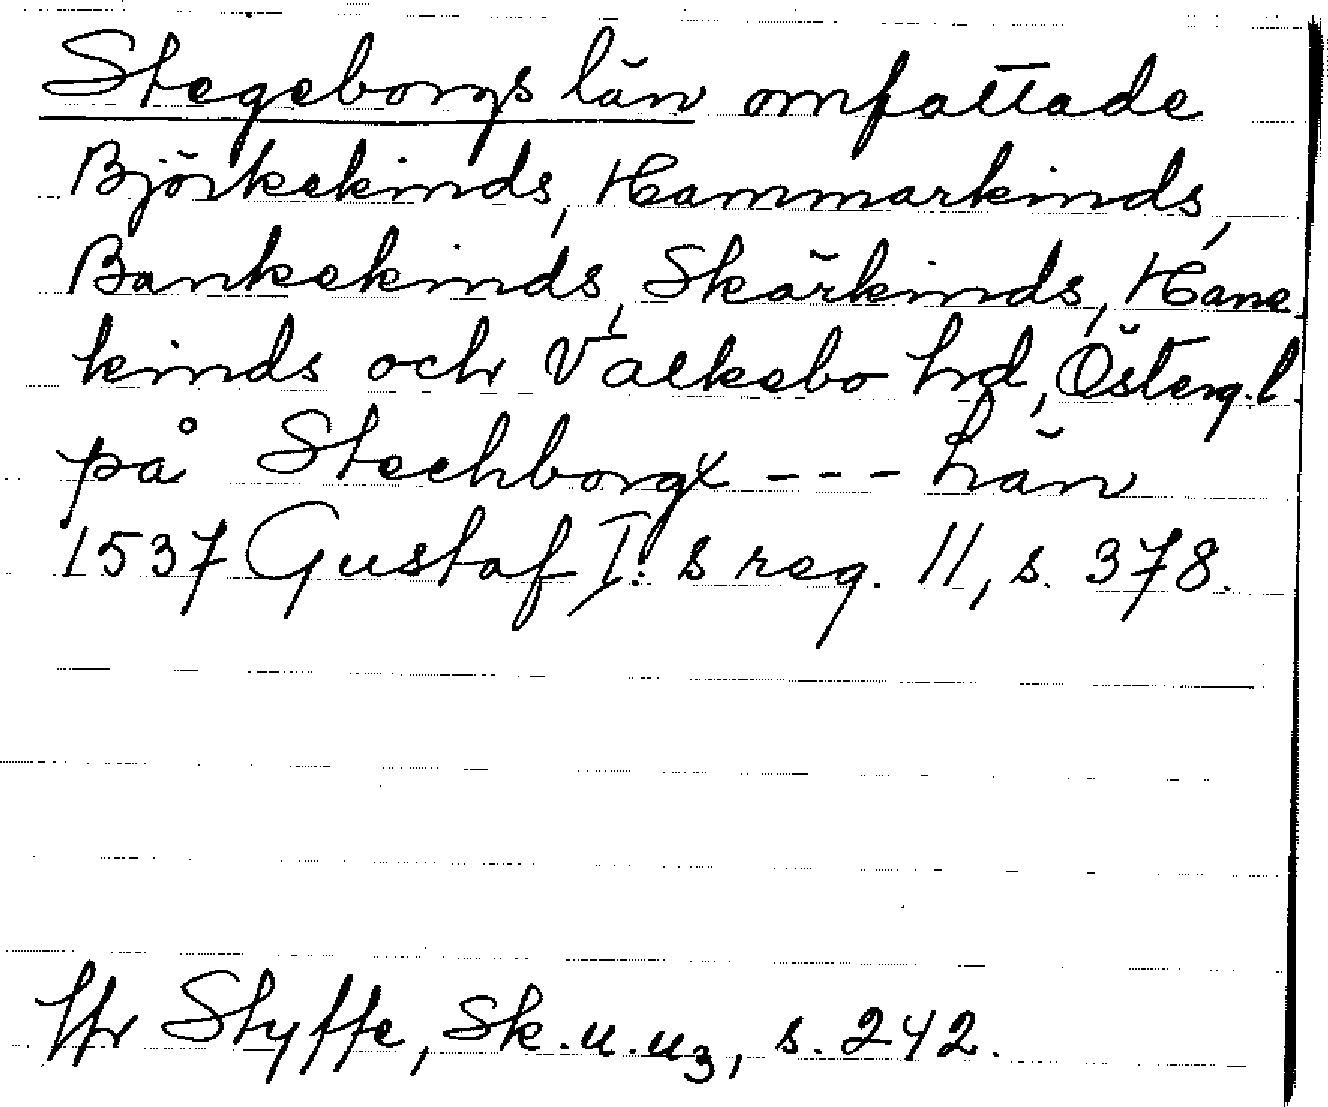 Stegeborgs län omfattade
Björkekinds, Hammarkinds,
Bankekinds, Skärkinds, Hane
kinds och Valkebo hrd, Österg.l.
på Stechborgx --- hän
1537 Gustaf I:s reg. 11, s. 378.
Jfr Styffe, Sk.u.u3, s. 242.